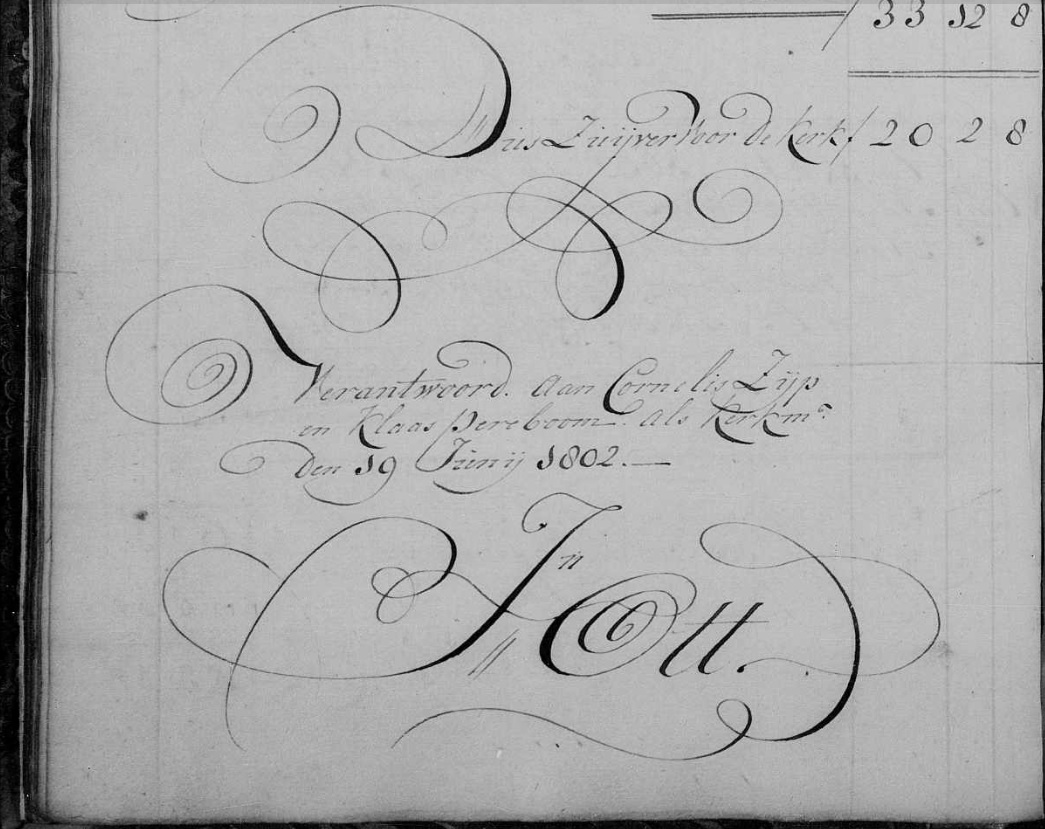 / 33 12 8
Dus Zuijver Voor de Kerk f 20 2 8
Verantwoord. aan Cornelis Zijp
en Klaas Pereboom. als Kerkmrs
Den 19 Junij 1802.
Jn Ott.